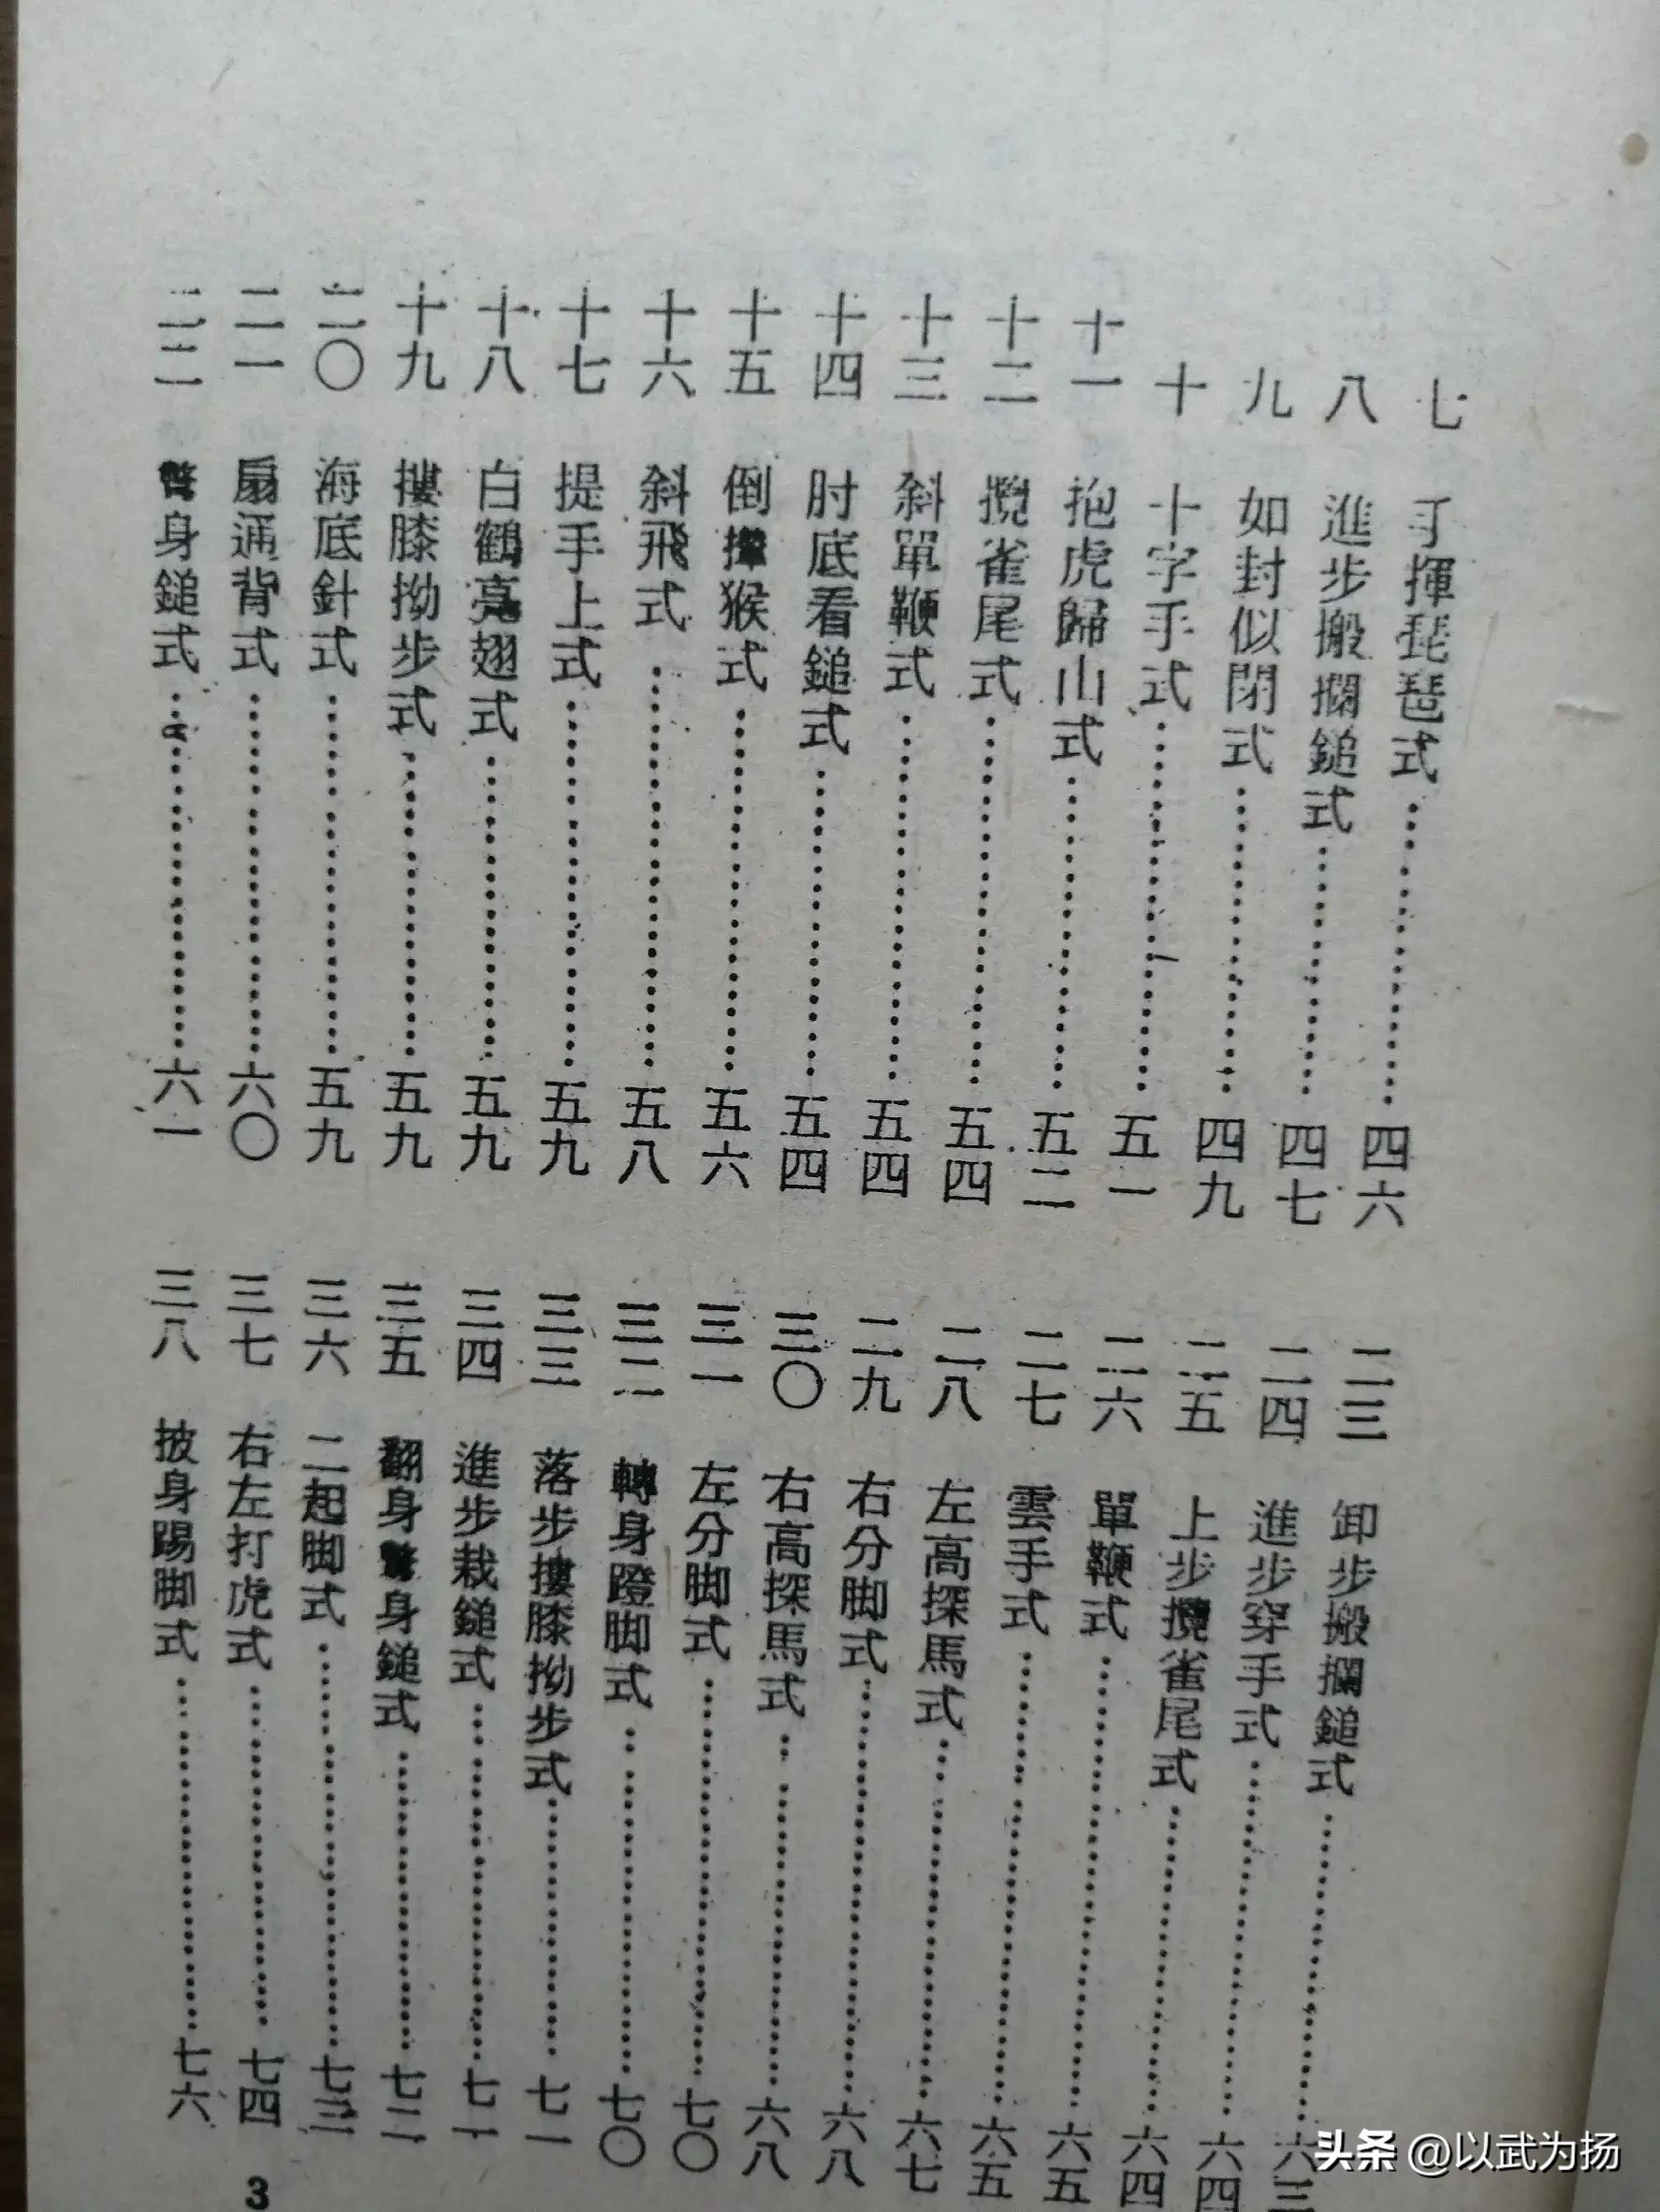 七 手揮琵琶式……四六
八 進步搬攔鎚式……四七
九 如封似閉式……四九
十 十字手式……五一
十一 抱虎歸山式……五二
十二 攬雀尾式……五四
十三 斜單鞭式……五四
十四 肘底看鎚式……五四
十五 倒攆猴式……五六
十六 斜飛式……五八
十七 提手上式……五九
十八 白鶴亮翅式……五九
十九 摟膝拗步式……五九
二〇 海底針式……五九
二一 扇通背式……六〇
二二 身鎚式……六一
二三 卸步搬攔鎚式……六三
二四 進步穿手式……六四
二五 上步攬雀尾式……六四
二六 單鞭式……六五
二七 雲手式……六五
二八 左高探馬式……六七
二九 右分脚式……六八
三〇 右高探馬式……六八
三一 左分脚式……七〇
三二 轉身蹬脚式……七〇
三三 落步摟膝拗步式……七一
三四 進步栽鎚式……七一
三五 翻身身鎚式……七二
三六 二起脚式……七三
三七 右左打虎式……七四
三八 披身踢脚式……七六
3
头条 @以武为扬